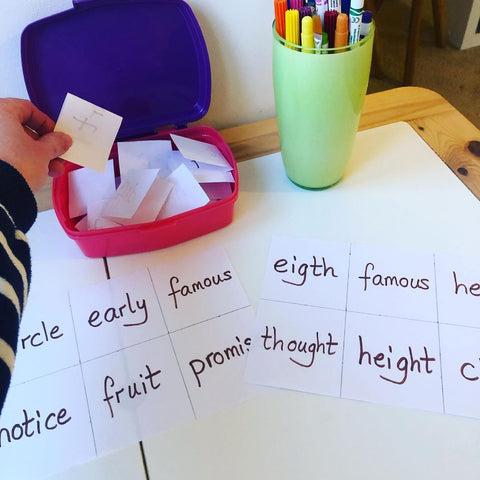 rcle early famous
notice fruit promis
eigth famous he
thought height c